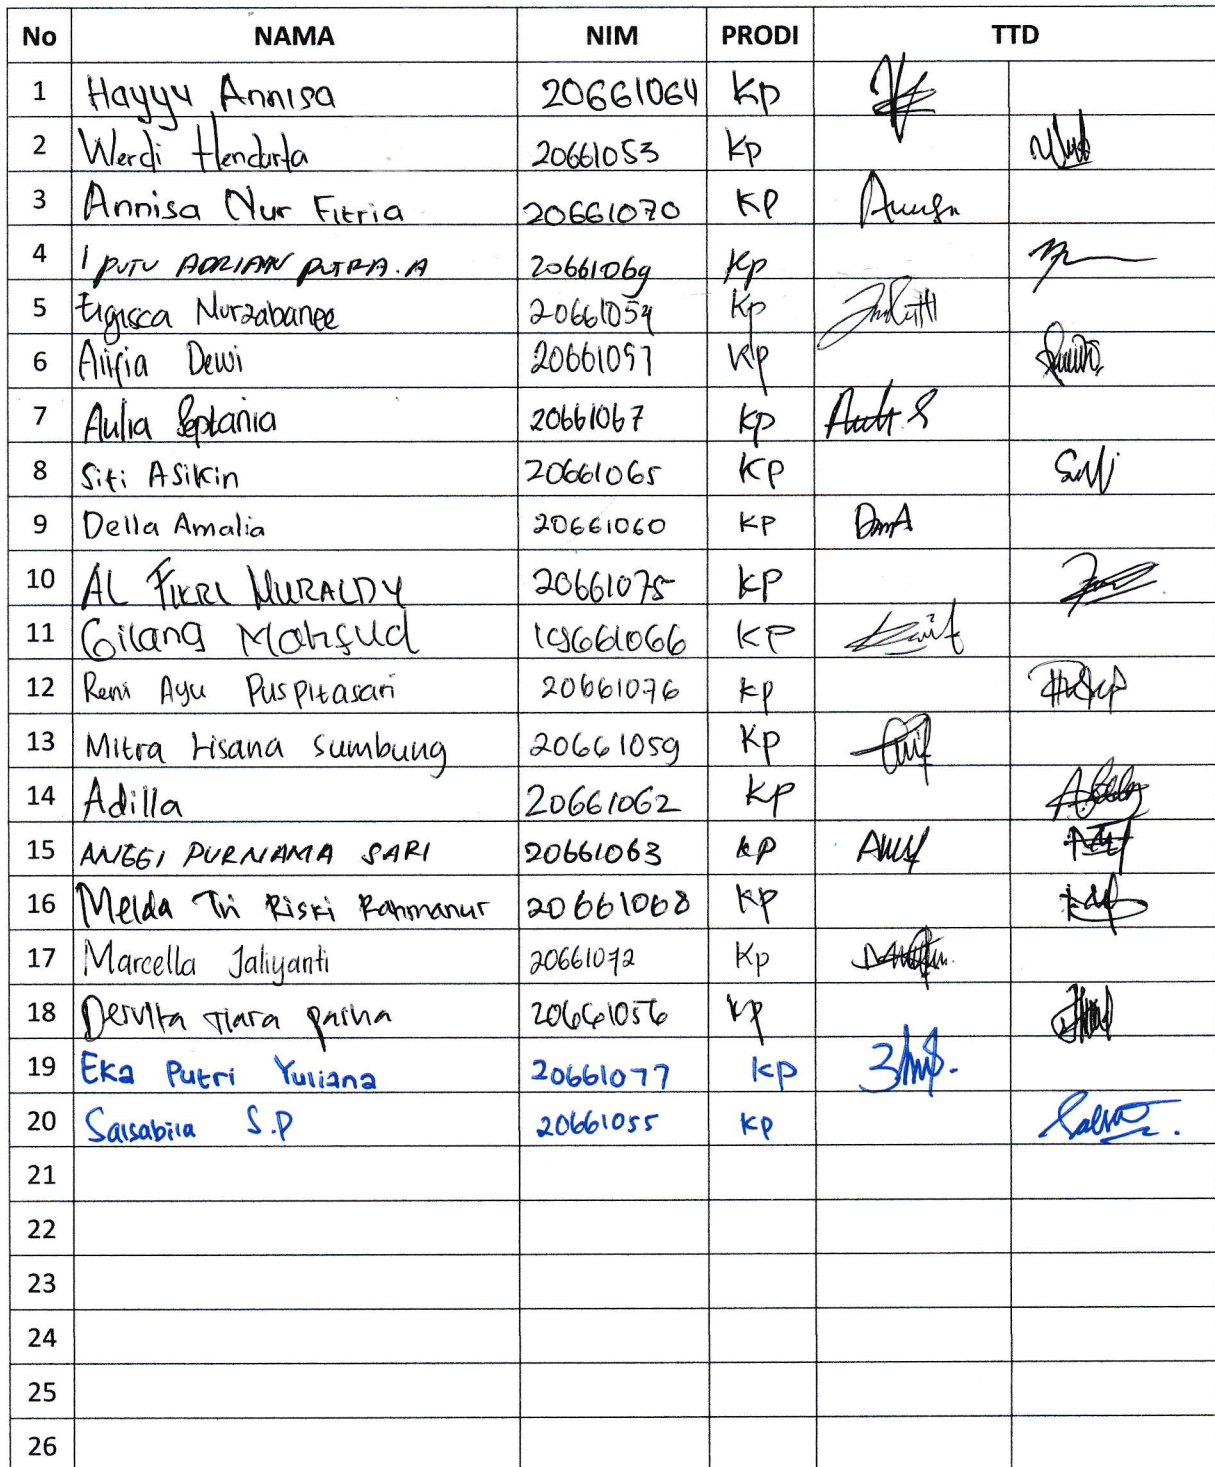 No NAMA NIM PRODI TTD
1 Hayyu Annisa 20661064 Kp
2 Werdi Hendarta 20661053 Kp
3 Annisa Nur Fitria 20661070 KP
4 I PUTU ADRIAN PUTRA.A 20661069 Kp
5 Nurzabanee 20661054 Kp
6 Dewi Kp
7 Aulia Septania 20661067 Kp
8 Siti Asikin 20661065 KP
9 Della Amalia 20661060 KP
10 AL FIKRI NURALDY 20661075 KP
11 Gilang Mahfud 19661066 KP
12 Reni Ayu Puspitasari 20661076 kp
13 Mitra Lisana Sumbung 20661059 Kp
14 Adilla 20661062 Kp
15 ANGGI PURNAMA SARI 20661063 KP
16 Melda Tri Riski Rahmanur 20661068 KP
17 Marcella Jaliyanti 20661072 Kp
18 Dervita Tiara 20661056 Kp
19 Eka Putri Yuliana 20661077 KP
20 Salsabila S.P 20661055 KP
21
22
23
24
25
26